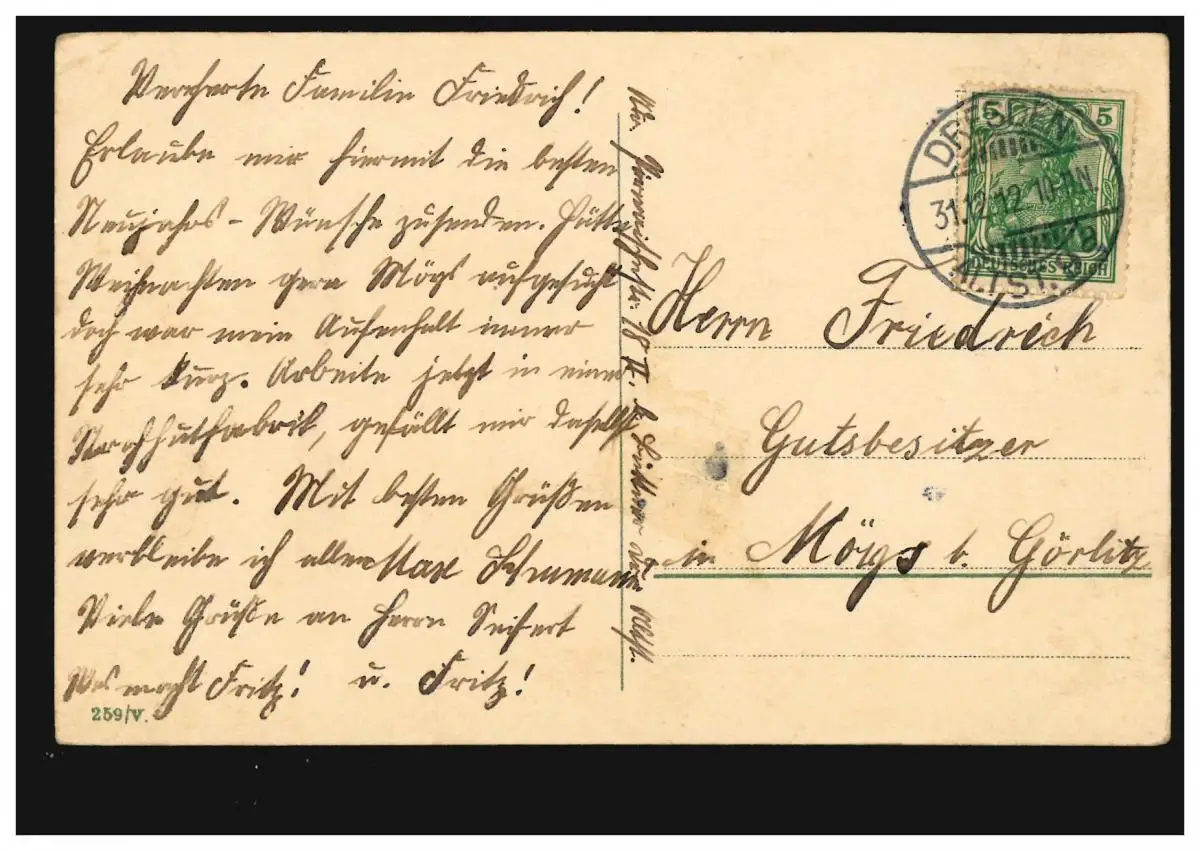 Verehrte Familie Friedrich!
Erlaube mir hiermit die besten
Neujahrs-Wünsche zusenden. Hätte
Weihnachten gern Möys aufgesucht
doch war mein Aufenhalt immer
sehr kurz. Arbeite jetzt in einer
Strohhutfabrik, gefällt mir daselbst
sehr gut. Mit besten Grüßen
verbleibe ich allen Max
Viele Grüße an Herrn Seifert
Was macht Fritz! u. Fritz!
259/V.
18 II. b.
5 5
DEUTSCHES REICH
DRESDEN
31.12.12. 10-11N.
ALTST. 1a
Herrn Friedrich
Gutsbesitzer
in Möys b. Görlitz